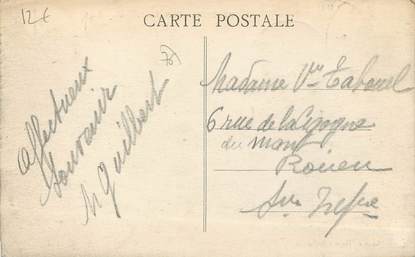 12€
CARTE POSTALE
76
affectueux
Souvenir
M Guilbert
Madame Vve Tabouel
6 rue de la Cigogne
du mont
Rouen
Sne Infre